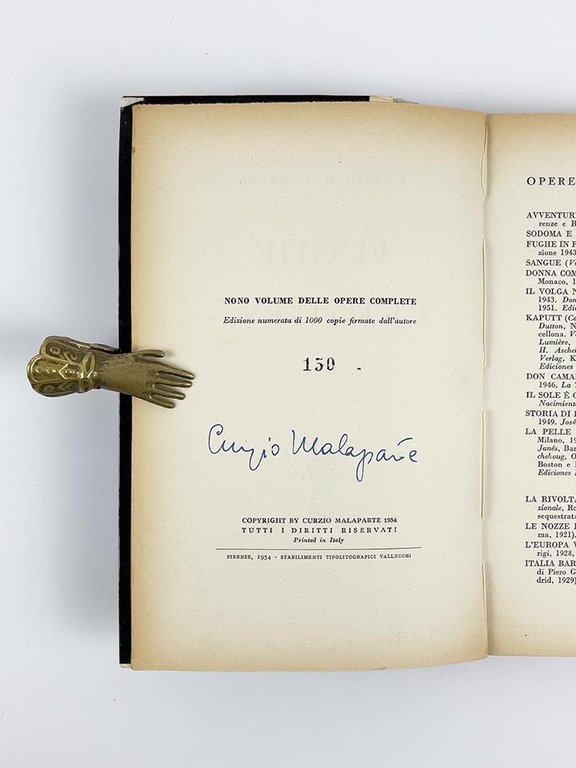 NONO VOLUME DELLE OPERE COMPLETE
Edizione numerata di 1000 copie firmate dall'autore
150
Curzio Malaparte
COPYRIGHT BY CURZIO MALAPARTE 1954
TUTTI I DIRITTI RISERVATI
Printed in Italy
FIRENZE, 1954 - STABILIMENTI TIPOLITOGRAFICI VALLECCHI
OPERE
AVVENTUR
renze e R
SODOMA E
FUGHE IN P
zione 1943
SANGUE (Va
DONNA COM
Monaco, 1
IL VOLGA N
1943. Don
1951. Edic
KAPUTT (Ca
Dutton, N
cellona. V
Lumière,
H. Asche
Verlag, K
Ediciones
DON CAMA
1946. La
IL SOLE È C
Nacimient
STORIA DI
1949. José
LA PELLE
Milano, 19
Janés, Bar
chehoug, O
Boston e
Ediciones
LA RIVOLT
zionale, Ro
sequestrata
LE NOZZE
ma, 1921).
L'EUROPA V
rigi, 1928,
ITALIA BAR
di Piero G
drid, 1929)